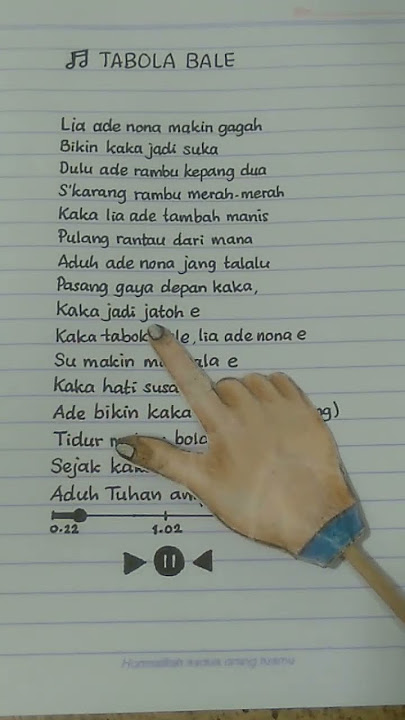 TABOLA BALE
Lia ade nona makin gagah
Bikin kaka jadi suka
Dulu ade rambu kepang dua
S'karang rambu merah-merah
Kaka lia ade tambah manis
Pulang rantau dari mana
Aduh ade nona jang talalu
Pasang gaya depan kaka,
Kaka jadi jatoh e
Kaka le, lia ade nona e
Su makin ala e
Kaka hati
Ade bikin kaka
Tidur
Sejak
Aduh Tuhan
0.22 1.02